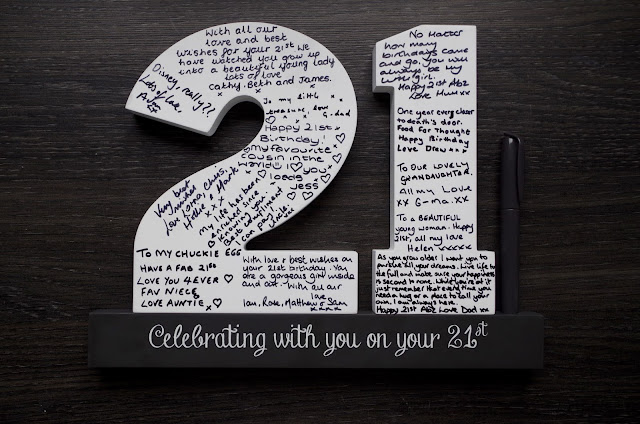 With all our
love and best
wishes for your 21st We
have watched you grow up
into a beautiful young lady
lots of love
Cathy, Beth and James.
x
Disney, really?!
Lots of love,
To my little
treasure, love
G-dad
x x
Happy 21st
Birthday!
my favourite
cousin in the
world! I ♡ you
loads
Jess
Very best
wishes
Love Lorna, Chris,
Hollie & Mark
x x x
My life has been
enriched since
knowing you
TO MY CHUCKIE EGG
HAVE A FAB 21st
LOVE YOU 4EVER
FAV NIECE
LOVE AUNTIE
With love & best wishes on
your 21st birthday. You
are a gorgeous girl inside
and out. With all our
love
Ian, Rose, Matthew & Sam
x x x x
No Matter
how many
birthdays come
and go, you will
always be my
little girl.
Happy 21st Abz
Love Mum xx
One year every closer
to death's door.
Food For Thought
Happy Birthday
Love Drew xxx
TO OUR LOVELY
GRANDAUGHTER.
All my Love
xx G-ma xx
To a BEAUTIFUL
young woman. Happy
21st, all my love
Helen xxxxx
As you grow older I want you to
pursue all your dreams. Live life to
the full and make sure your happiness
is second to none. While you're at it
just remember that every time you
need a hug or a place to call your
own, I am always here.
Happy 21st Abz Love Dad xx
Celebrating with you on your 21st